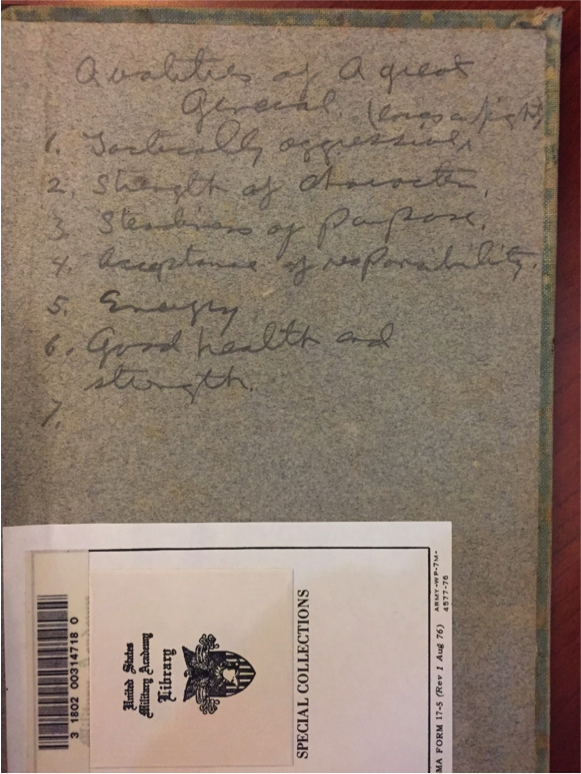 Qualities of A great
General. (loves a fight)
1. Tactically aggressive,
2. Strength of character.
3. Steadiness of purpose.
4. Acceptance of responsibility.
5. Energy
6. Good health and
strength.
7.
3 1802 00314718 0
United States
Military Academy
Library
SPECIAL COLLECTIONS
MA FORM 17-5 (Rev 1 Aug 76)
ARMY-WP-7M-
4577-76